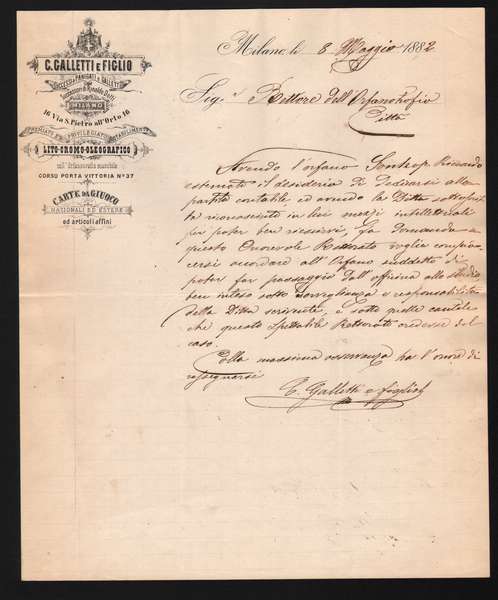 C. GALLETTI E FIGLIO
SUCCESSI A PANIGATI E GALLETTI
Successori di Rinaldo Dotti
MILANO
16 Via S. Pietro all'Orto 16
PREMIATO E PRIVILEGIATO STABILIMENTO
LITO-CROMO-OLEOGRAFICO
CORSO PORTA VITTORIA N° 37
CARTE DA GIUOCO
NAZIONALI ED ESTERE
ed articoli affini
Milano, li 8 Maggio 1882
Sig. Rettore dell'Orfanotrofio
Città
Avendo l'orfano Riccardo
esternato il desiderio di dedicarsi alla
partita contabile ed avendo la Ditta sottoscrit
ta riconosciuto in lui mezzi intellettuali
per poter ben riescirvi, fa domanda a
questo Onorevole Rettorato voglia compia
cersi accordare all'Orfano suddetto di
poter far passaggio dall'officina allo studio
ben inteso sotto sorveglianza e responsabilità
della Ditta scrivente, e sotto quelle cautele
che questo Spettabile Rettorato credesse del
caso.
Colla massima osservanza ha l'onore di
rassegnarsi
C. Galletti e figlio